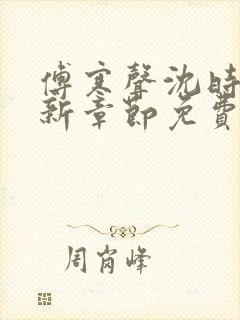 傅寒聲沈時
新章節免費
周岗峰